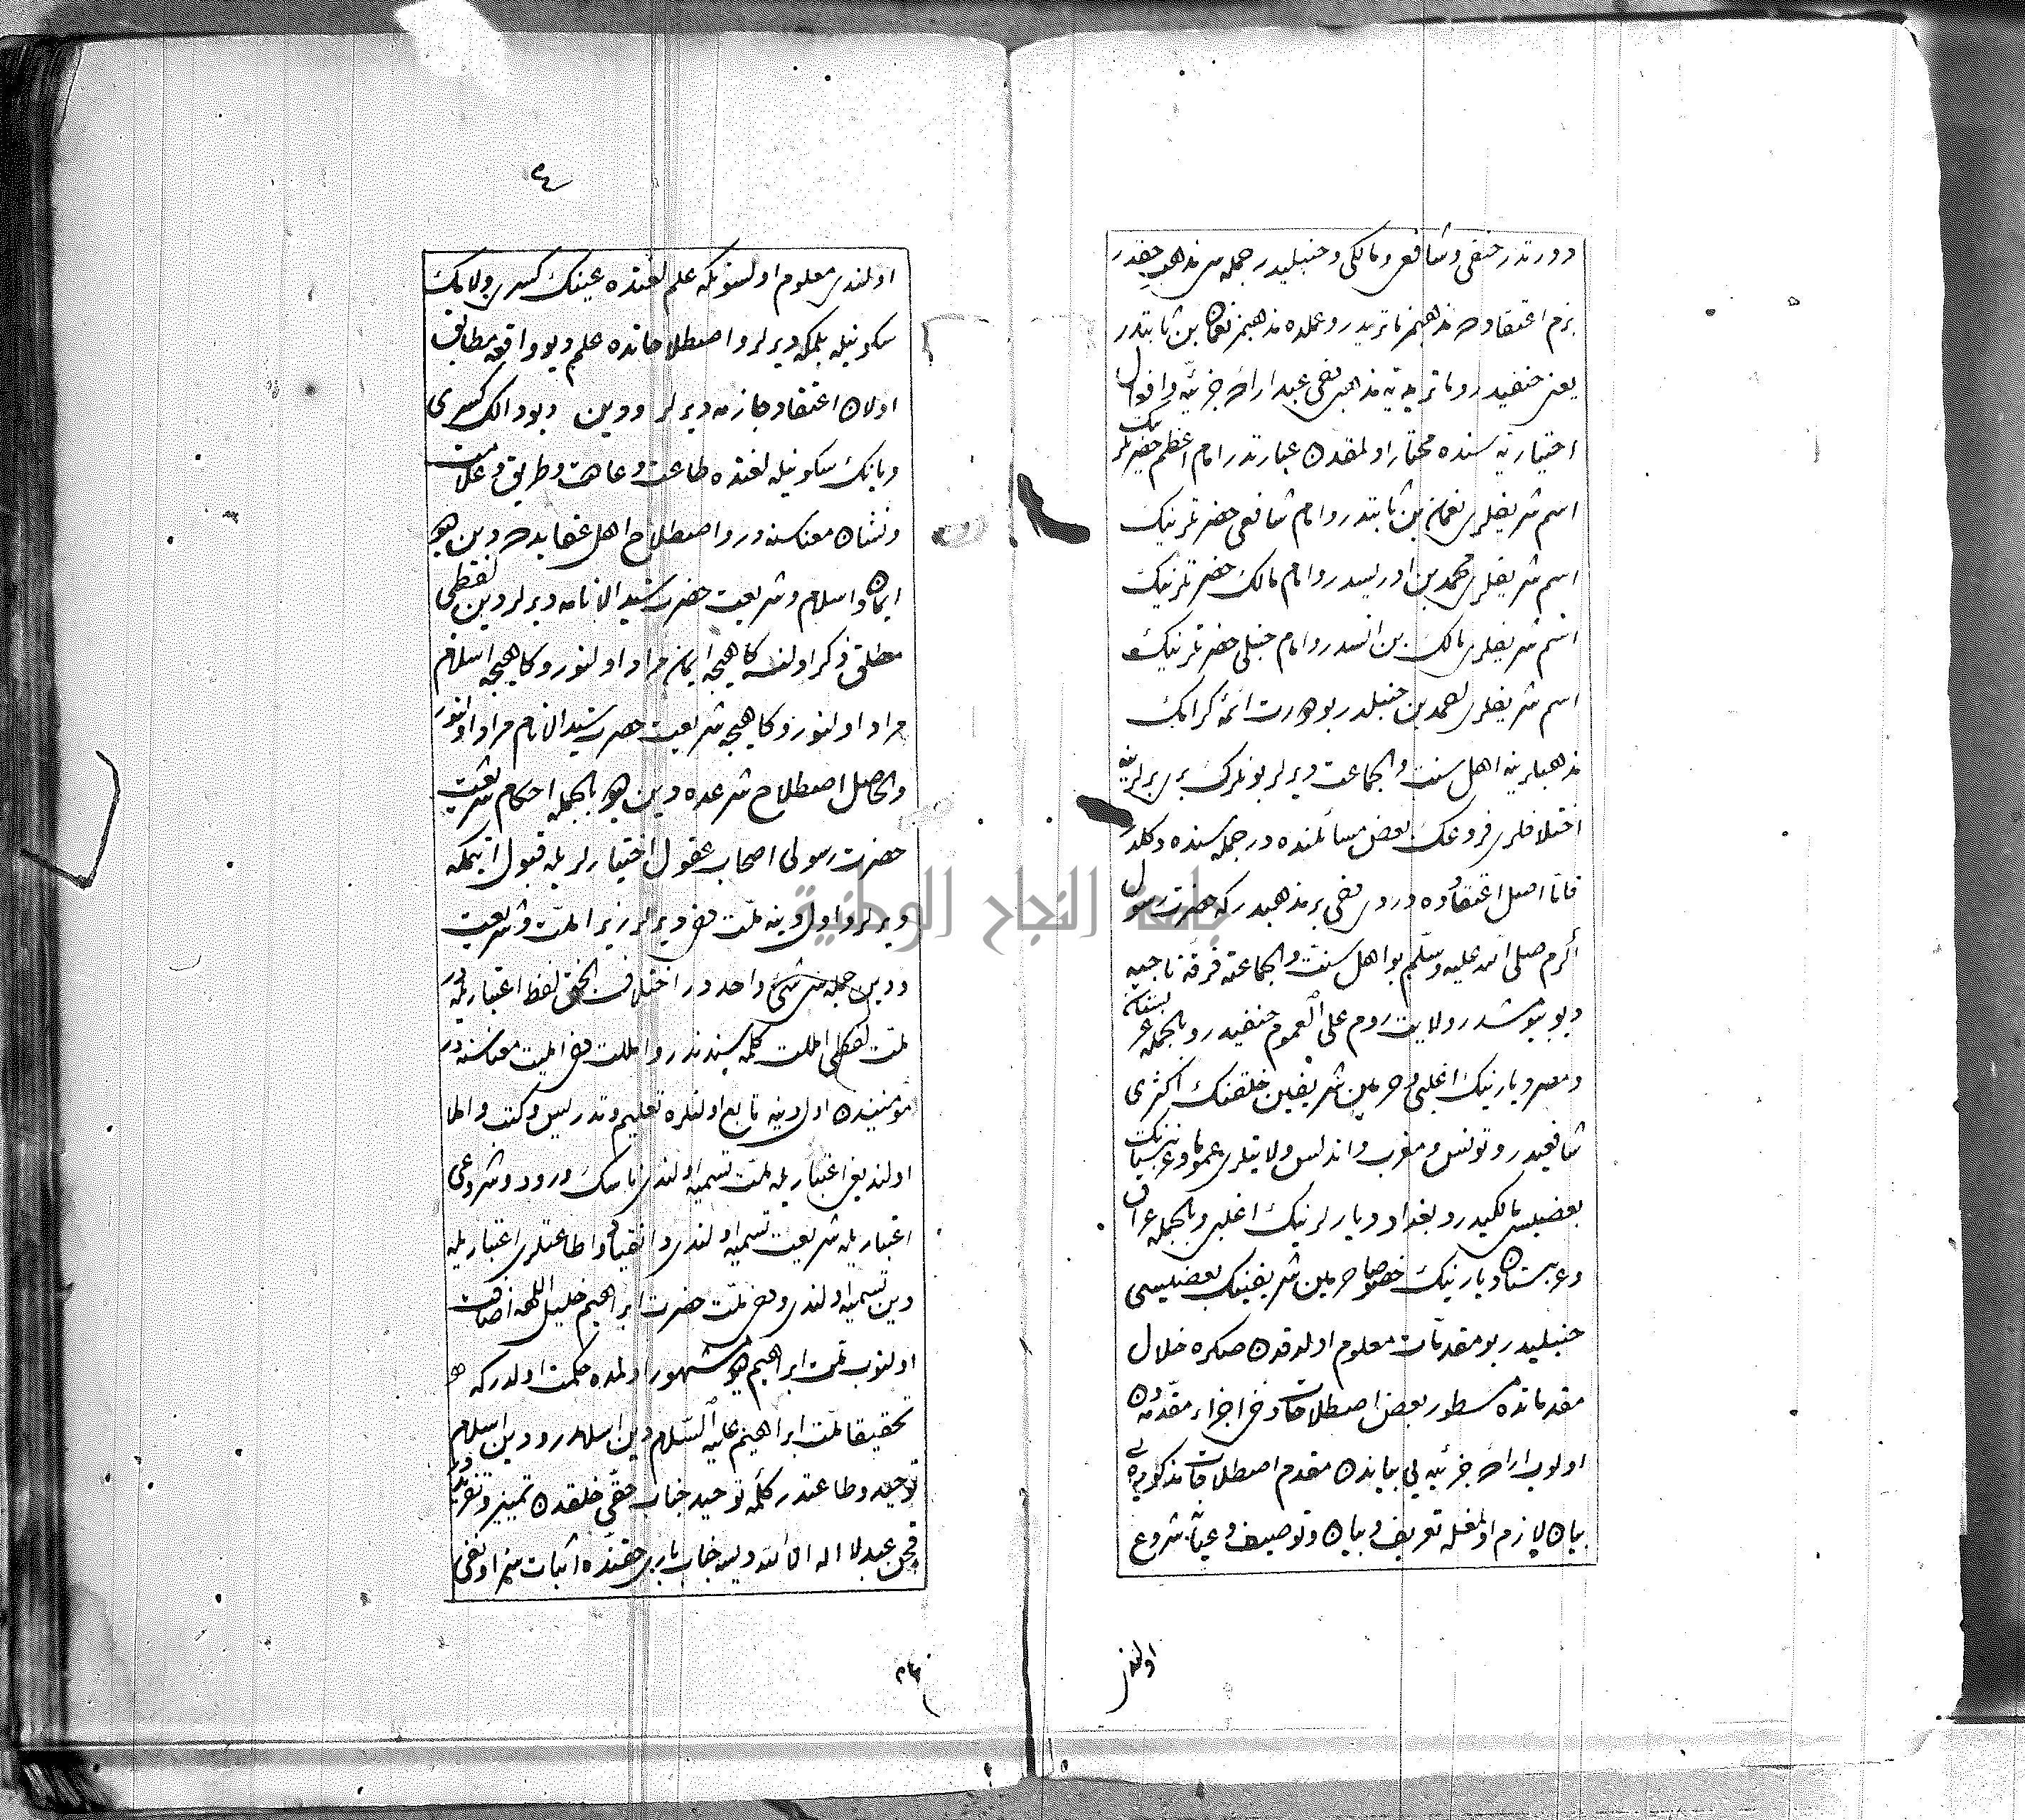 دورتدر حنفی و شافعی و مالکی و حنبلیدر جمله سی مذهب حقدر
بزم اعتقادده مذهبمز ماتریدیدر و عملده مذهبمز نعمان بن ثابتدر
یعنی حنفیدر و ماتریدیه مذهبی نفی عبد اراده جزئیه و افعال
اختیاریه سنده مختار اولمقدن عبارتدر امام اعظم حضرتلرینك
اسم شریفلری نعمان بن ثابتدر و امام شافعی حضرتلرینك
اسم شریفلری محمد بن ادریسدر و امام مالك حضرتلرینك
اسم شریفلری مالك بن انسدر و امام حنبلی حضرتلرینك
اسم شریفلری احمد بن حنبلدر بو دورت ائمه كرامك
مذهبلرینه اهل سنت والجماعت دیرلر بونلرك بربرلرینه
اختلافلری فروعك بعض مسائلنده در جمله سنده دكلدر
فاما اصل اعتقادده دردی دخی بر مذهبدر كه حضرت رسول
اكرم صلی الله علیه وسلم بو اهل سنت والجماعته فرقه ناجیه
دیو بیورمشدر ولایت روم علی العموم حنفیدر و بالجمله عربستان
و مصر دیارینك اغلبی و حرمین شریفین خلقنك اكثری
شافعیدر و تونس و مغرب و اندلس ولایتلری عموما و عربستانك
بعضیسی مالكیدر و بغداد دیارلرینك اغلبی و بالجمله عراق
و عربستان دیارینك خصوصا حرمین شریفینك بعضیسی
حنبلیدر بو مقدمات معلوم اولدقدن صكره خلال
مقدماتده مسطور بعض اصطلاحات دخی اجزاء مقدمه دن
اولوب اراده جزئیه یی بیاندن مقدم اصطلاحات مذكوره یی
بیان لازم اولمغله تعریف و بیان و توصیف و عیانه شروع
اولندی
٤
اولندی معلوم اولسونكه علم لغتده عینك كسری و لامك
سكونیله بلمكه دیرلر و اصطلاحاتده علم دیو واقعه مطابق
اولان اعتقاد جازمه دیرلر و دین دیو دالك كسری
و یانك سكونیله لغتده طاعت و عادت و طریق و علامت
و نشان معناسنه در و اصطلاح اهل عقایدده دین دیو
ایمان و اسلام و شریعت حضرت سید الانامه دیرلر دین لفظی
مطلق ذكر اولنسه كاهیجه ایمان مراد اولنور و كاهیجه اسلام
مراد اولنور و كاهیجه شریعت حضرت سید الانام مراد اولنور
والحاصل اصطلاح شرعده دین دیو بالجمله احكام شریعت
حضرت رسولی اصحاب عقول اختیارلریله قبول ایتمكه
دیرلر و اول دینه ملت دخی دیرلر زیرا ملت و شریعت
و دین جمله سی شئ واحد در اختلاف انجق لفظ اعتباریله در
ملت لفظی املت كلمه سیندندر و املت دخی املیت معناسنه در
مؤمنیندن اول دینه تابع اولنلره تعلیم و تدریس و كتب و املا
اولندیغی اعتباریله ملت تسمیه اولندی ناسك ورود و شروعی
اعتباریله شریعت تسمیه اولندی و انقیاد و اطاعتلری اعتباریله
دین تسمیه اولندی و دخی ملت حضرت ابراهیم خلیل اللهه اضافت
اولنوب ملت ابراهیم دیو مشهور اولمده حكمت اولدركه
تحقیقا ملت ابراهیم علیه السلام دین اسلامدر و دین اسلام
توحید و طاعتدر كلمه توحید جناب حقی خلقدن تمییز و تفریددر
قچن عبد لا اله الا الله دیسه جناب باری حقنده اثبات